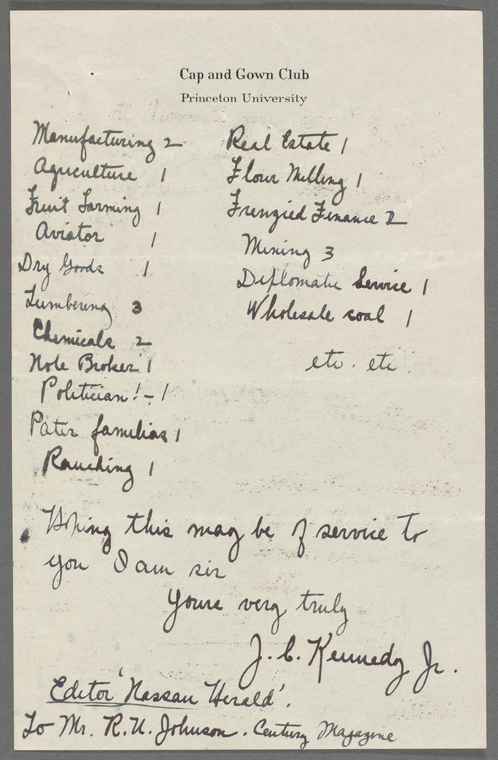 Cap and Gown Club
Princeton University
Manufacturing 2
Agriculture 1
Fruit Farming 1
Aviator 1
Dry Goods 1
Lumbering 3
Chemicals 2
Note Broker 1
Politician! - 1
Pater familias 1
Ranching 1
Real Estate 1
Flour Milling 1
Frenzied Finance 2
Mining 3
Diplomatic Service 1
Wholesale coal 1
etc. etc.
Hoping this may be of service to
you I am sir
Yours very truly
J. C. Kennedy Jr.
Editor 'Nassau Herald'.
To Mr. R. U. Johnson. Century Magazine